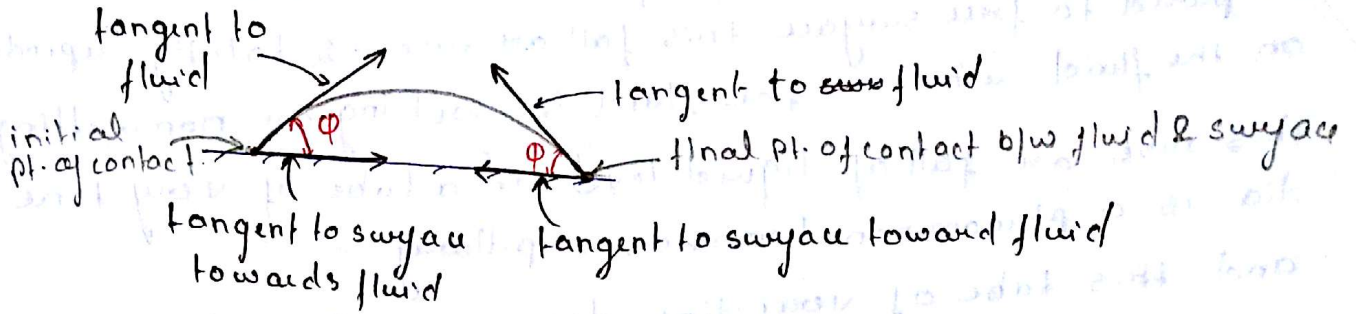 tangent to
fluid
tangent to fluid
initial
pt. of contact
φ
φ
final pt. of contact b/w fluid & surface
tangent to surface
towards fluid
tangent to surface toward fluid